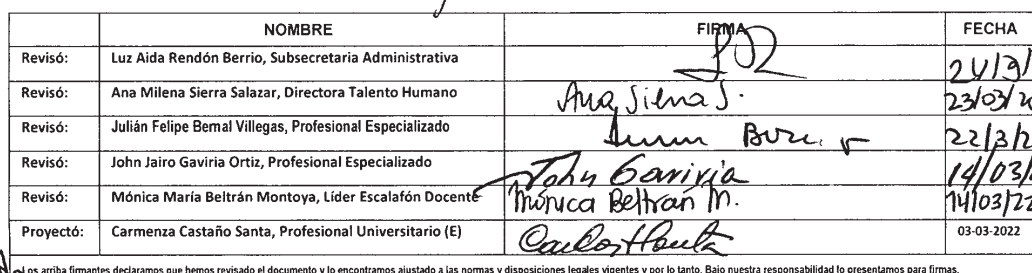 NOMBRE FIRMA FECHA
Revisó: Luz Aida Rendón Berrio, Subsecretaria Administrativa
Revisó: Ana Milena Sierra Salazar, Directora Talento Humano Ana Sierra S. 23/03/
Revisó: Julián Felipe Bernal Villegas, Profesional Especializado 22/3/2
Revisó: John Jairo Gaviria Ortiz, Profesional Especializado John Gaviria 14/03/
Revisó: Mónica María Beltrán Montoya, Líder Escalafón Docente Mónica Beltrán M. 14/03/22
Proyectó: Carmenza Castaño Santa, Profesional Universitario (E) 03-03-2022
Los arriba firmantes declaramos que hemos revisado el documento y lo encontramos ajustado a las normas y disposiciones legales vigentes y por lo tanto. Bajo nuestra responsabilidad lo presentamos para firmas.